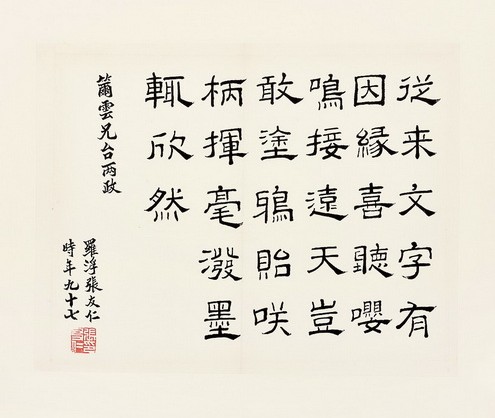 従来文字有
因縁喜聽嚶
鳴接遠天豈
敢塗鴉貽咲
柄揮毫潑墨
輒欣然
籋雲兄台两政
羅浮張友仁
時年九十七